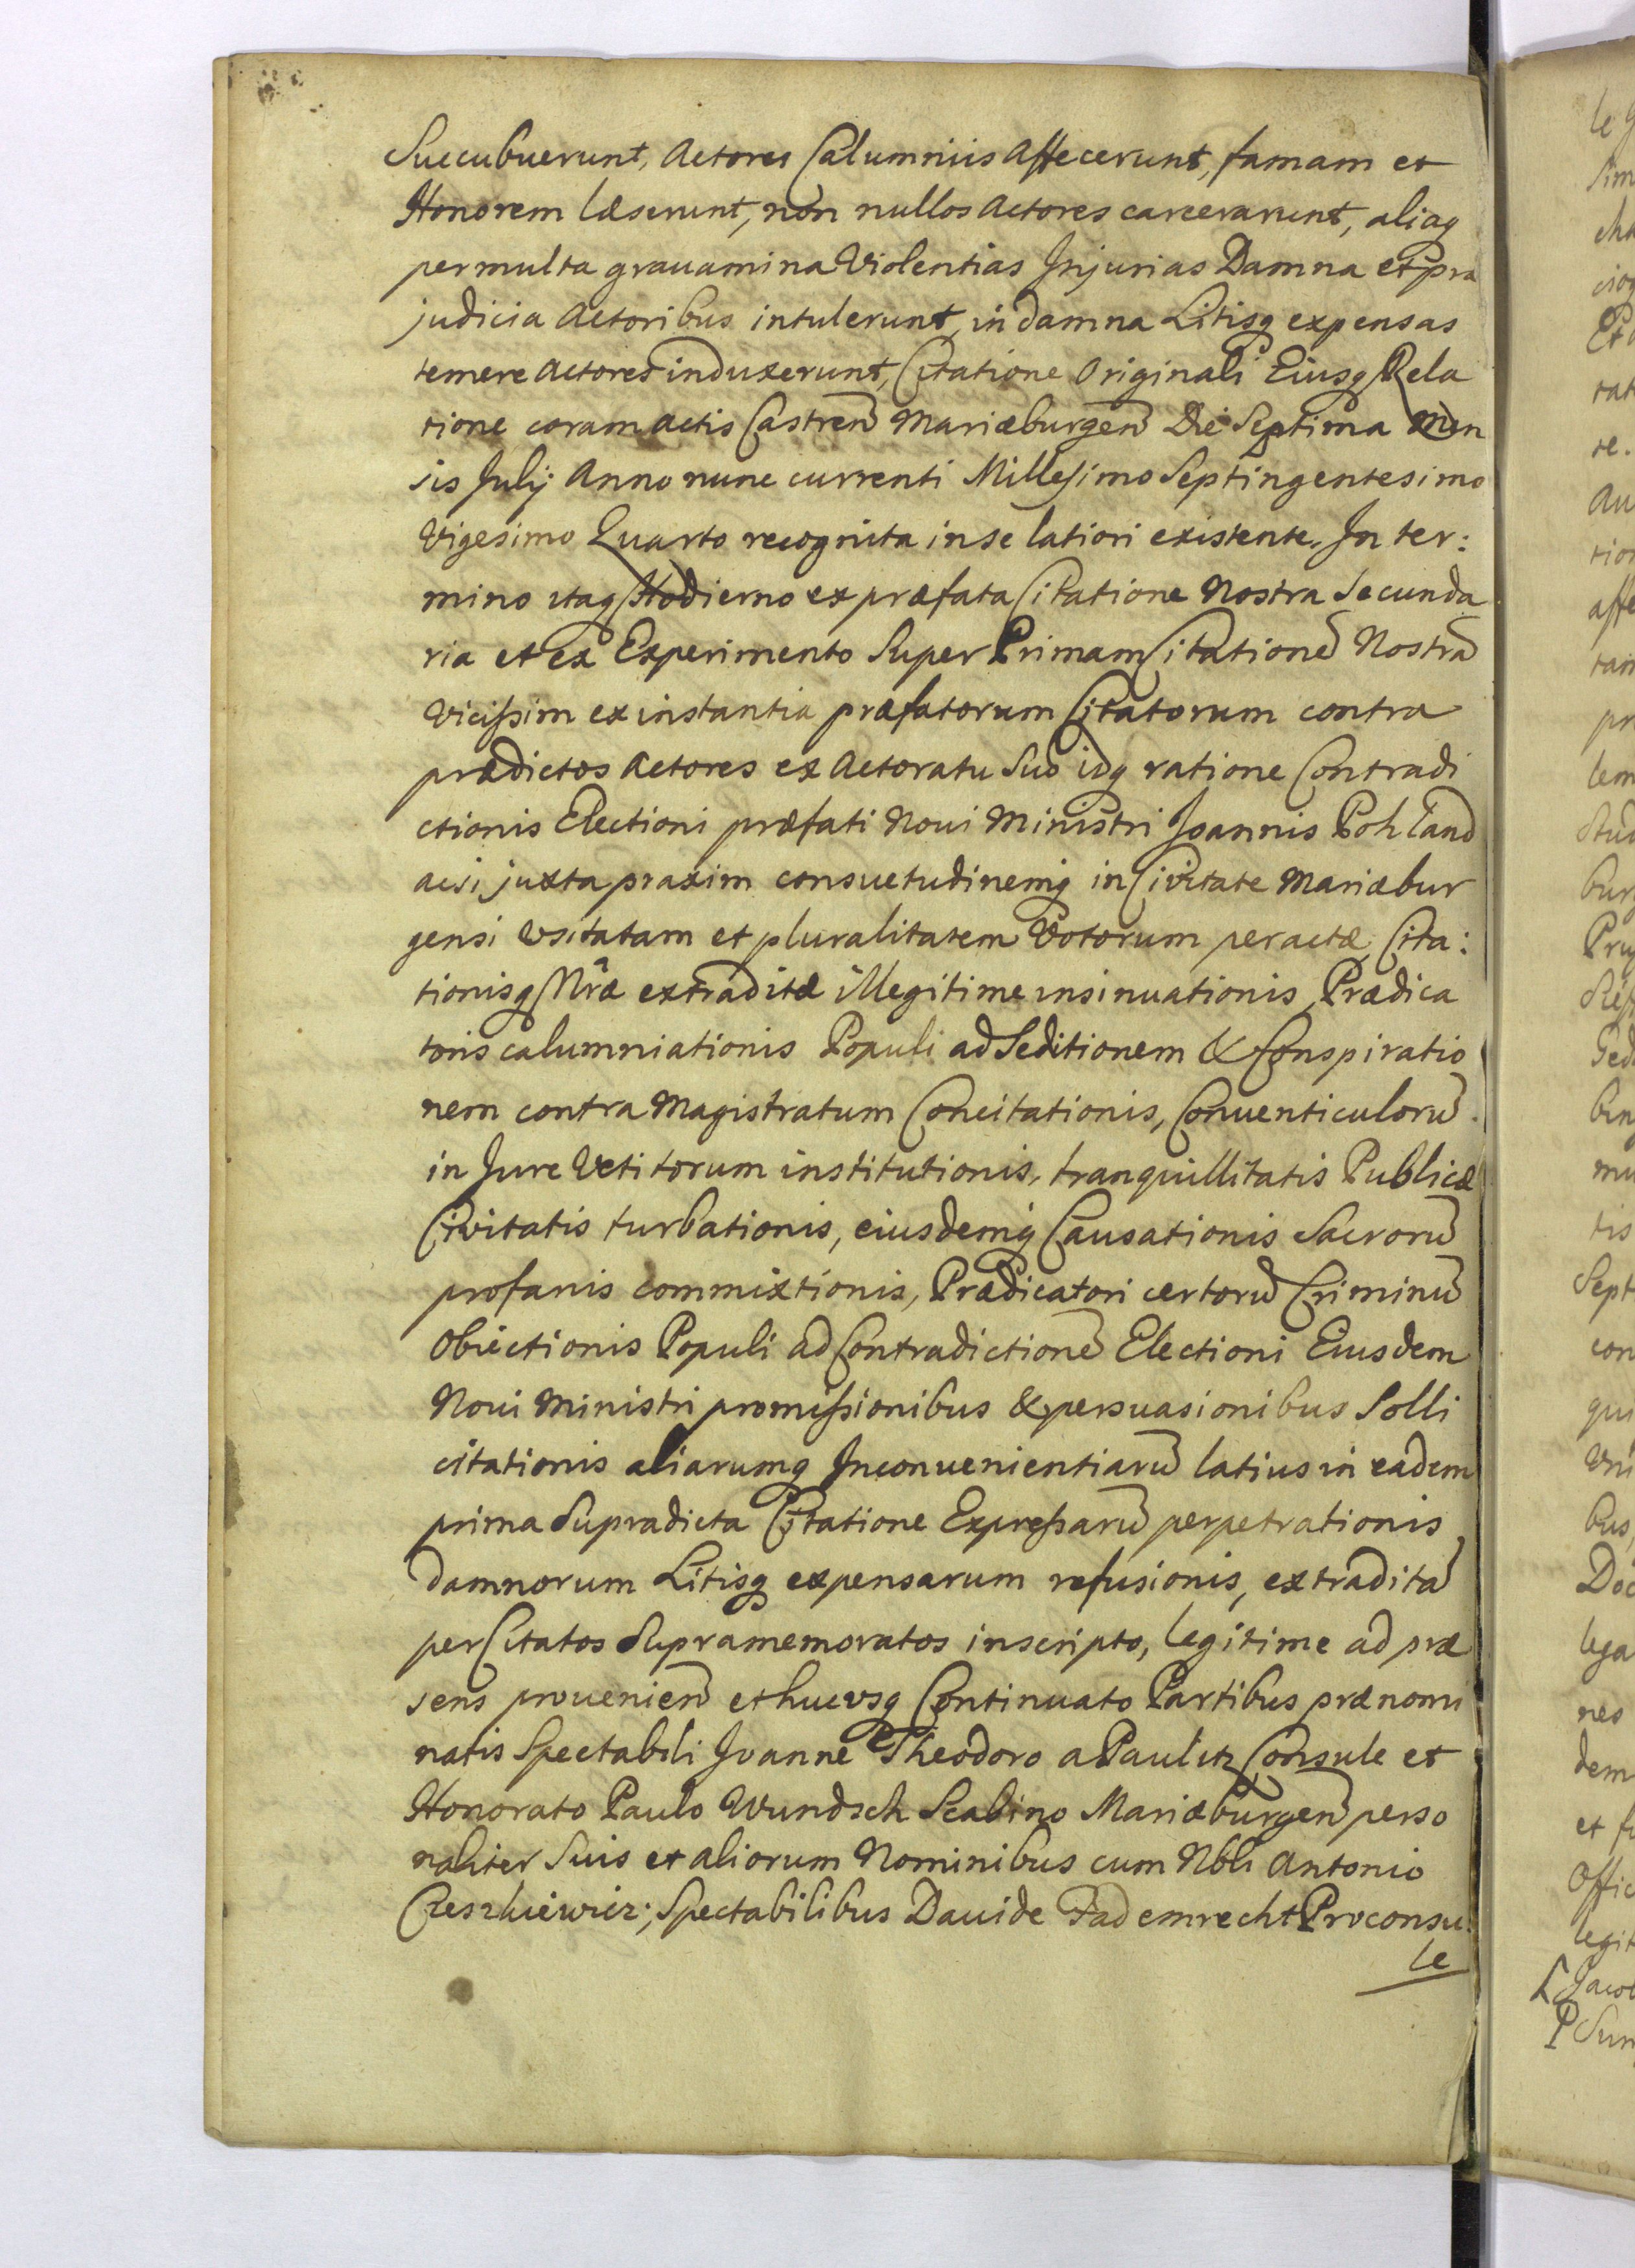 Succubuerunt, Actores Calumniis Affecerunt, famam et
Honorem læserunt, non nullos Actores carcerarunt, aliaq
permulta grauamina Violentias Injurias Damna et præ
judicia Actoribus intulerunt, in damna Litisq expensas
temere Actores induxerunt, Citatione Originali Eiusq Rela
tione coram Actis Castren Mariæburgen Die Septima Men
sis Julij Anno nunc currenti Millesimo Septingentesimo
Vigesimo Quarto recognita in se latiori existente. In ter:
mino itaq Hodierno ex præfata Citatione Nostra Secunda
ria et ex Experimento Super Primam Citatione Nostra
Vicissim ex instantia præfatorum Citatorum contra
prædictos Actores ex Actoratu Suo idq ratione Contradi
ctionis Electioni præfati Noui Ministri Joannis Pohland
acsi juxta praxim consuetudinemq in Civitate Mariæbur
gensi Vsitatam et pluralitatem Votorum peractæ, Cita:
tionisq Nræ extraditæ illegitime insinuationis, Prædica
toris calumniationis Populi ad Seditionem & Conspiratio
nem contra Magistratum Concitationis, Conuenticuloru
in Jure Vetitorum institutionis, tranquillitatis Publicæ
Civitatis turbationis, eiusdemq Causationis Sacroru
profanis commixtionis, Prædicatori certoru Criminu
Obiectionis Populi ad Contradictione Electioni Eiusdem
Noui Ministri promissionibus & persuasionibus Solli
citationis aliarumq Inconuenientiaru latius in eadem
prima Supradicta Citatione Expressaru perpetrationis
damnorum Litisq expensarum refusionis, extradita
per Citatos Supramemoratos inscripto, legitime ad præ
sens prouenien et hucvsq Continuato Partibus prænomi
natis Spectabili Joanne Theodoro a Paulitz Consule et
Honorato Paulo Wundsch Scabino Mariæburgen perso
naliter Suis et aliorum Nominibus cum Nbli Antonio
Czeszkiewicz; Spectabilibus Dauide Fademrecht Proconsu:
le